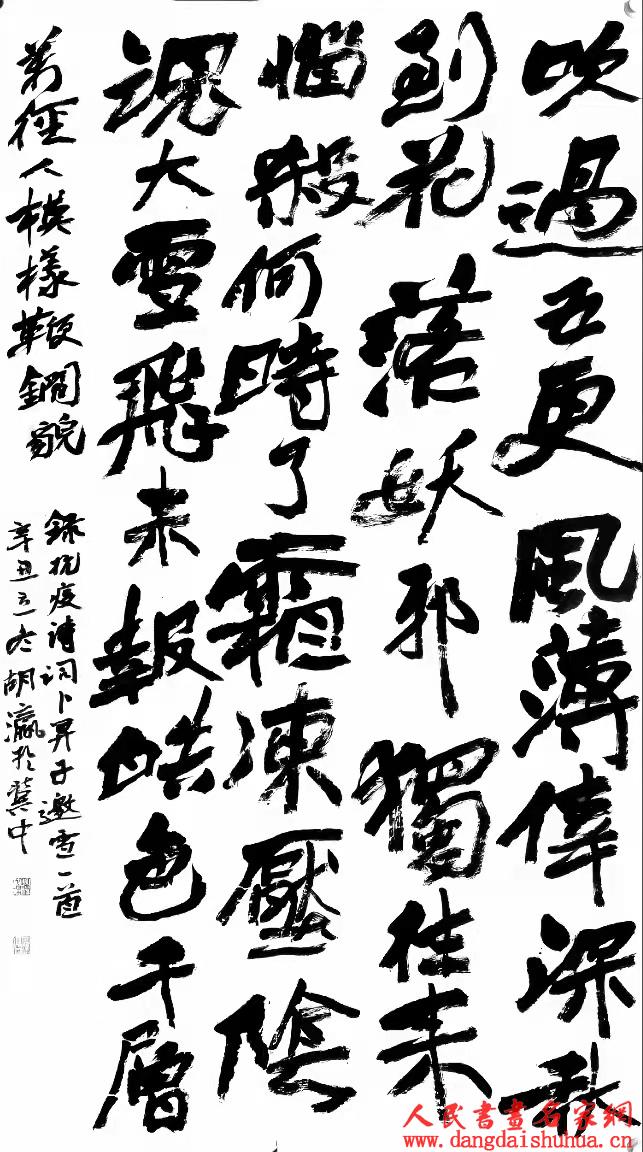 吹過五更風薄倖深秋
到花落妖邪獨往来
惱殺何時了霜凍壓陰
魂大雪飛未報皓色千層
萬徑人模樣鞭鐧貌
録抗疫詩詞卜算子邀雪一首
辛丑立冬胡瀛於冀中
人民書畫名家網
www.dangdaishuhua.cn